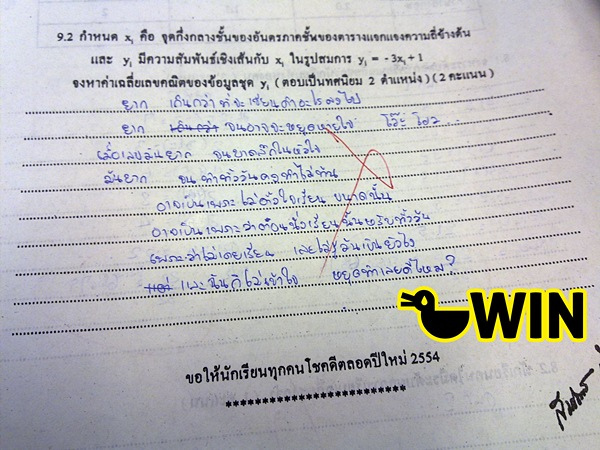 9.2 กำหนด xᵢ คือ จุดกึ่งกลางชั้นของอันตรภาคชั้นของตารางแจกแจงความถี่ข้างต้น
และ yᵢ มีความสัมพันธ์เชิงเส้นกับ xᵢ ในรูปสมการ yᵢ = -3xᵢ+1
จงหาค่าเฉลี่ยเลขคณิตของข้อมูลชุด yᵢ (ตอบเป็นทศนิยม 2 ตำแหน่ง) (2 คะแนน)
ยาก เกินกว่าที่จะเขียนคำอะไรลงไป
ยาก เกินกว่า จนอาจจะหยุดหายใจ โว๊ะ โอว
เมื่อเลขมันยาก จนบาดลึกในหัวใจ
มันยาก จน ทำทั้งวันคงทำไม่ทัน
อาจเป็นเพราะ ไม่ตั้งใจเรียน ขนาดนั้น
อาจเป็นเพราะว่าตอนนั่งเรียนฉันหลับทั้งวัน
เพราะว่าไม่เคยเรียน เลยไม่รู้มันเป็นยังไง
และฉันก็ไม่เข้าใจ หยุดทำเลยดีไหม?
WIN
ขอให้นักเรียนทุกคนโชคดีตลอดปีใหม่ 2554
************************